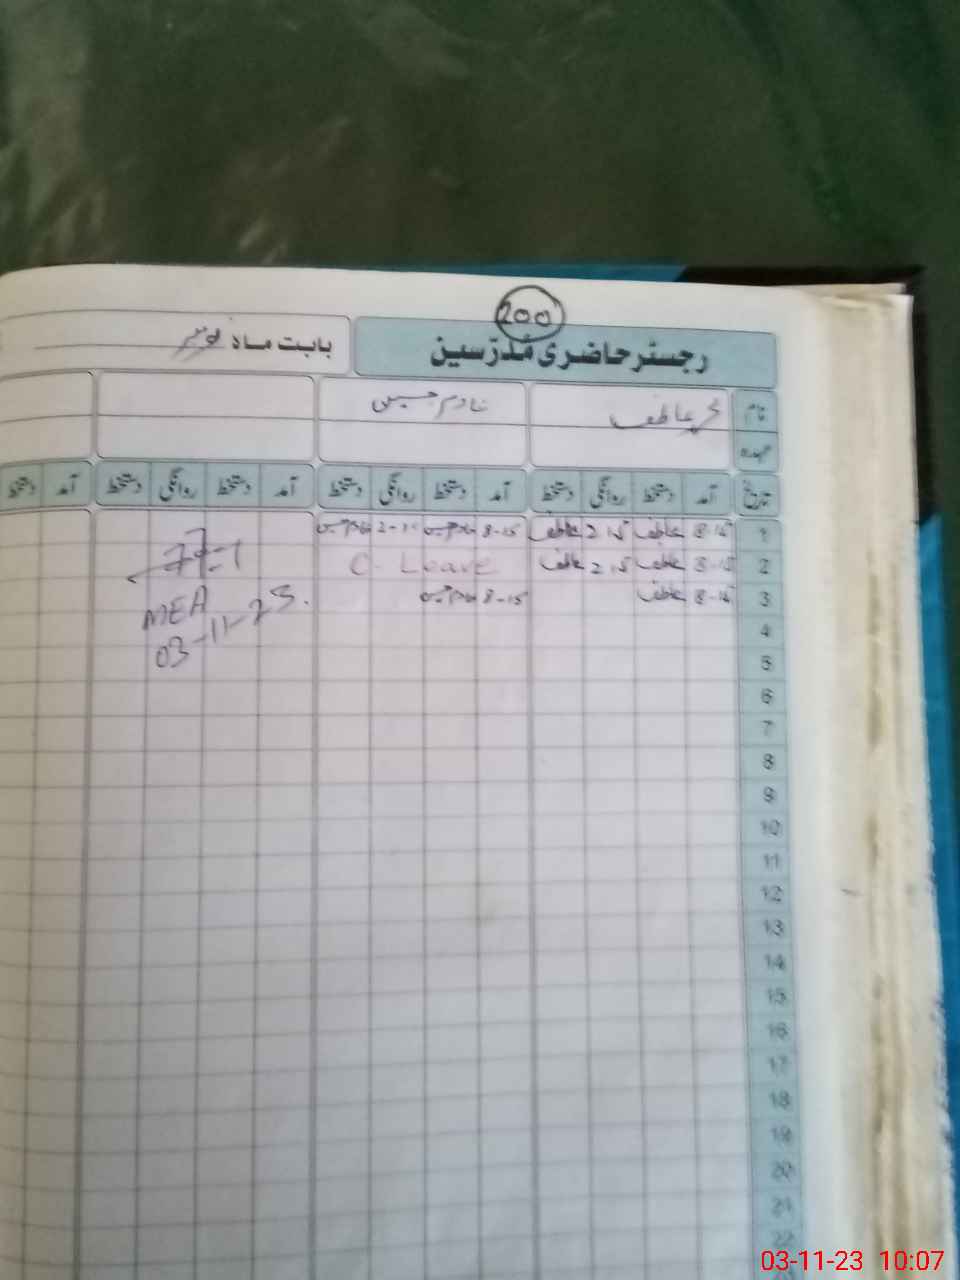 200
رجسٹر حاضری مُدرّسین
بابت ماہ نومبر
نام محمد عاطف خادم حسین
عہدہ
تاریخ آمد دستخط روانگی دستخط آمد دستخط روانگی دستخط آمد دستخط روانگی دستخط آمد دستخط
1 8-15 عاطف 2.15 عاطف 8-15 خادم حسین 2-15 خادم حسین
2 8-15 عاطف 2.15 عاطف C. Leave
3 8-15 عاطف 8-15 خادم حسین
MEA
03-11-23.
4
5
6
7
8
9
10
11
12
13
14
15
16
17
18
19
20
21
22
03-11-23 10:07